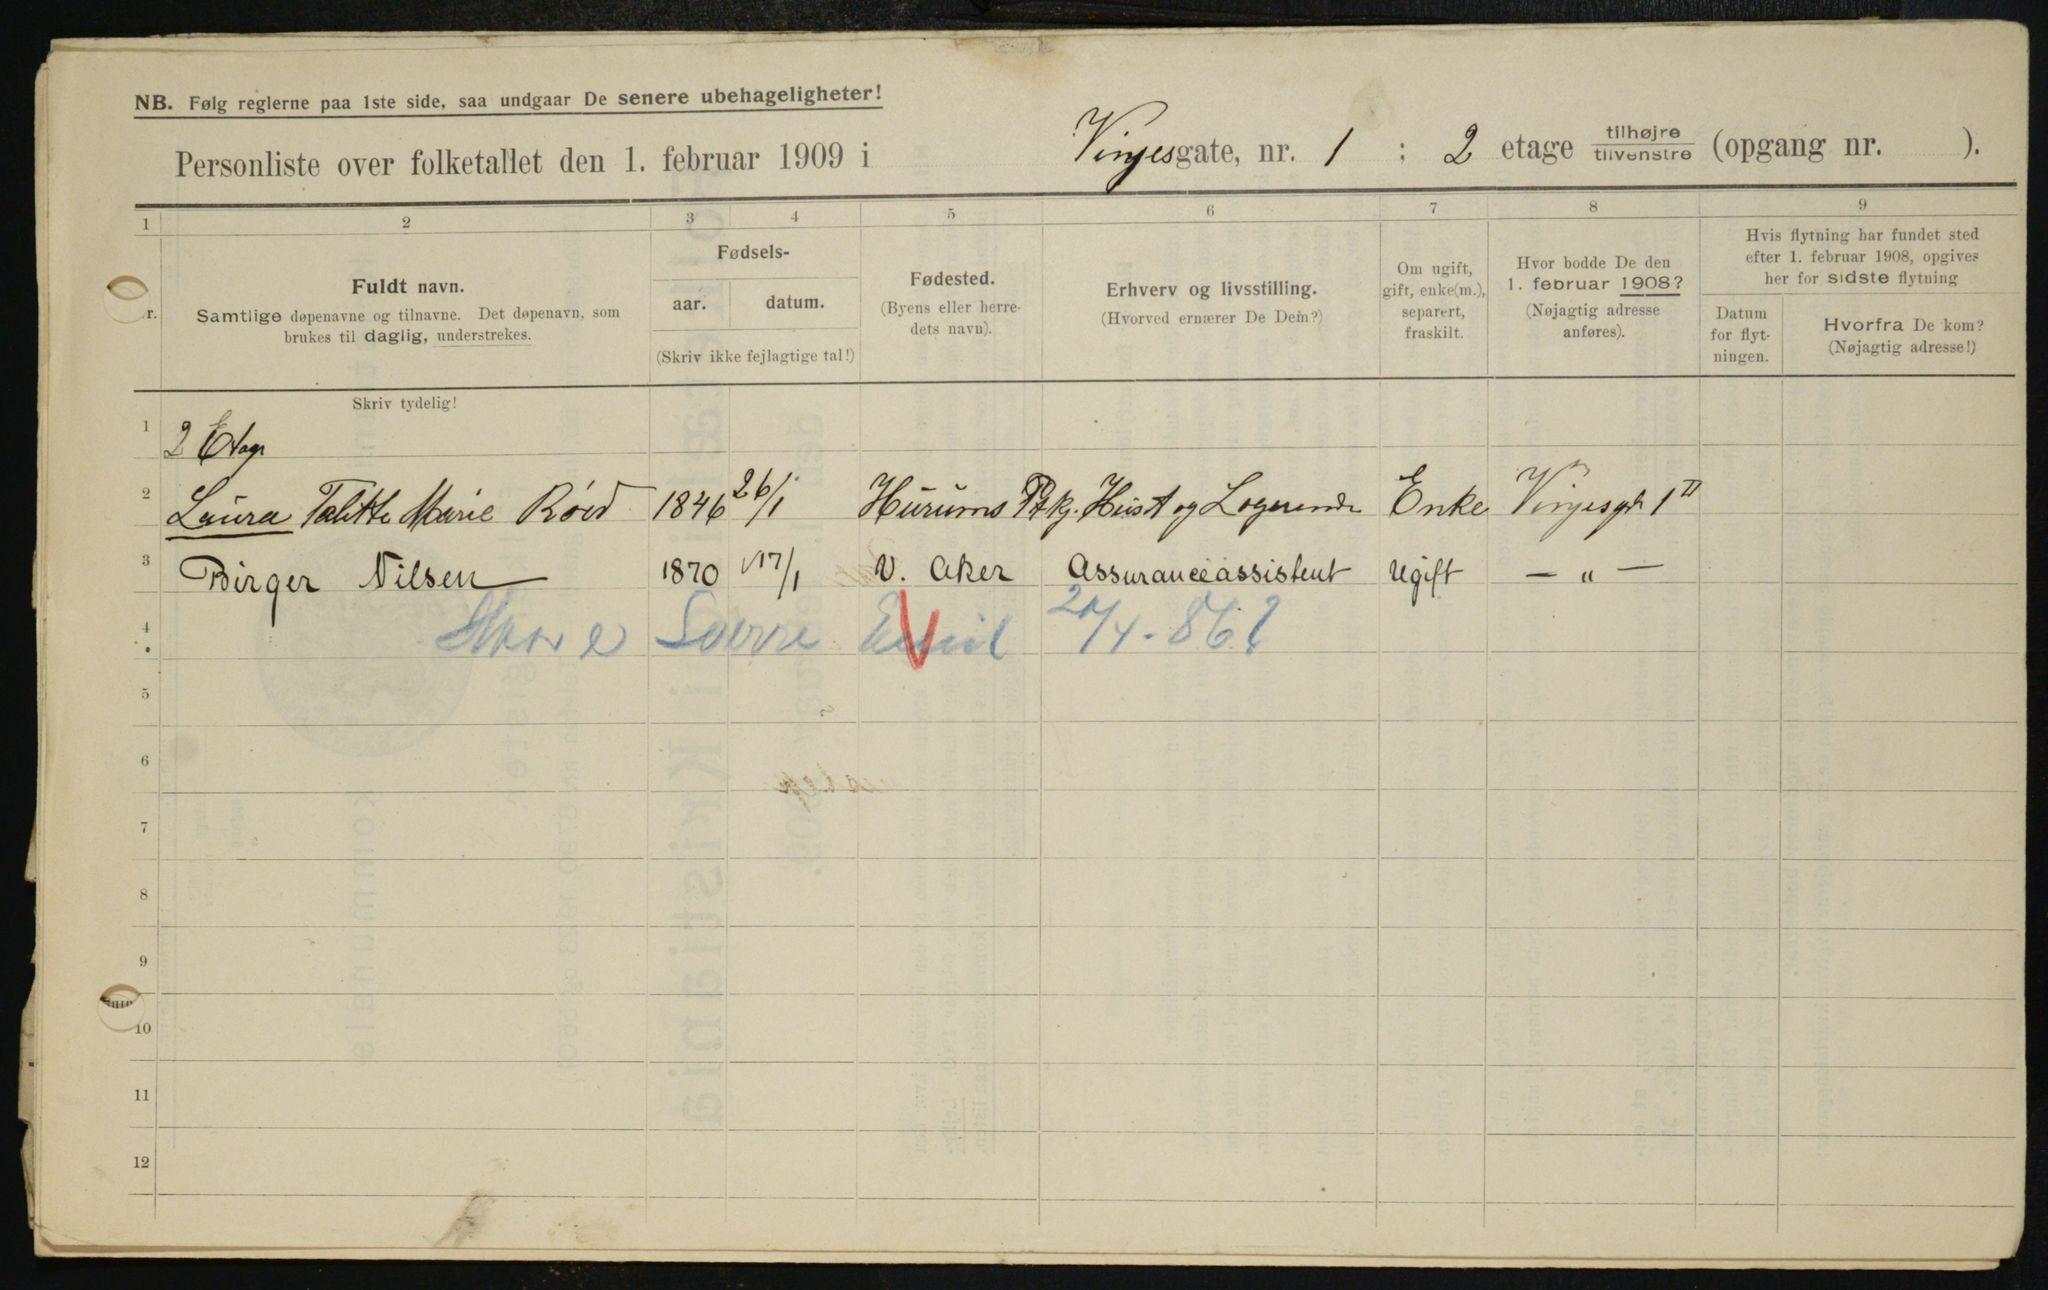 NB. Følg reglerne paa 1ste side, saa undgaar De senere ubehageligheter!
Personliste over folketallet den 1. februar 1909 i Vinjesgate, nr. 1 ; 2 etage tilhøjre / tilvenstre (opgang nr. ).
1 2 3 4 5 6 7 8 9
Fuldt navn.
Samtlige døpenavne og tilnavne. Det døpenavn, som
brukes til daglig, understrekes.
Fødsels-
aar. datum.
(Skriv ikke fejlagtige tal!)
Fødested.
(Byens eller herre-
dets navn).
Erhverv og livsstilling.
(Hvorved ernærer De Dem?)
Om ugift,
gift, enke(m.),
separert,
fraskilt.
Hvor bodde De den
1. februar 1908?
(Nøjagtig adresse
anføres).
Hvis flytning har fundet sted
efter 1. februar 1908, opgives
her for sidste flytning
Datum
for flyt-
ningen.
Hvorfra De kom?
(Nøjagtig adresse!)
Skriv tydelig!
1 2 Etage
2 Laura Talitte Marie Röed 1846 26/1 Hurums Pstkj. Hust og Logerende Enke Vinjesgt 1 II
3 Birger Nilsen 1870 17/1 V. Aker Assuranceassistent Ugift — " —
4 Sverre Emil 86?
5
6
7
8
9
10
11
12